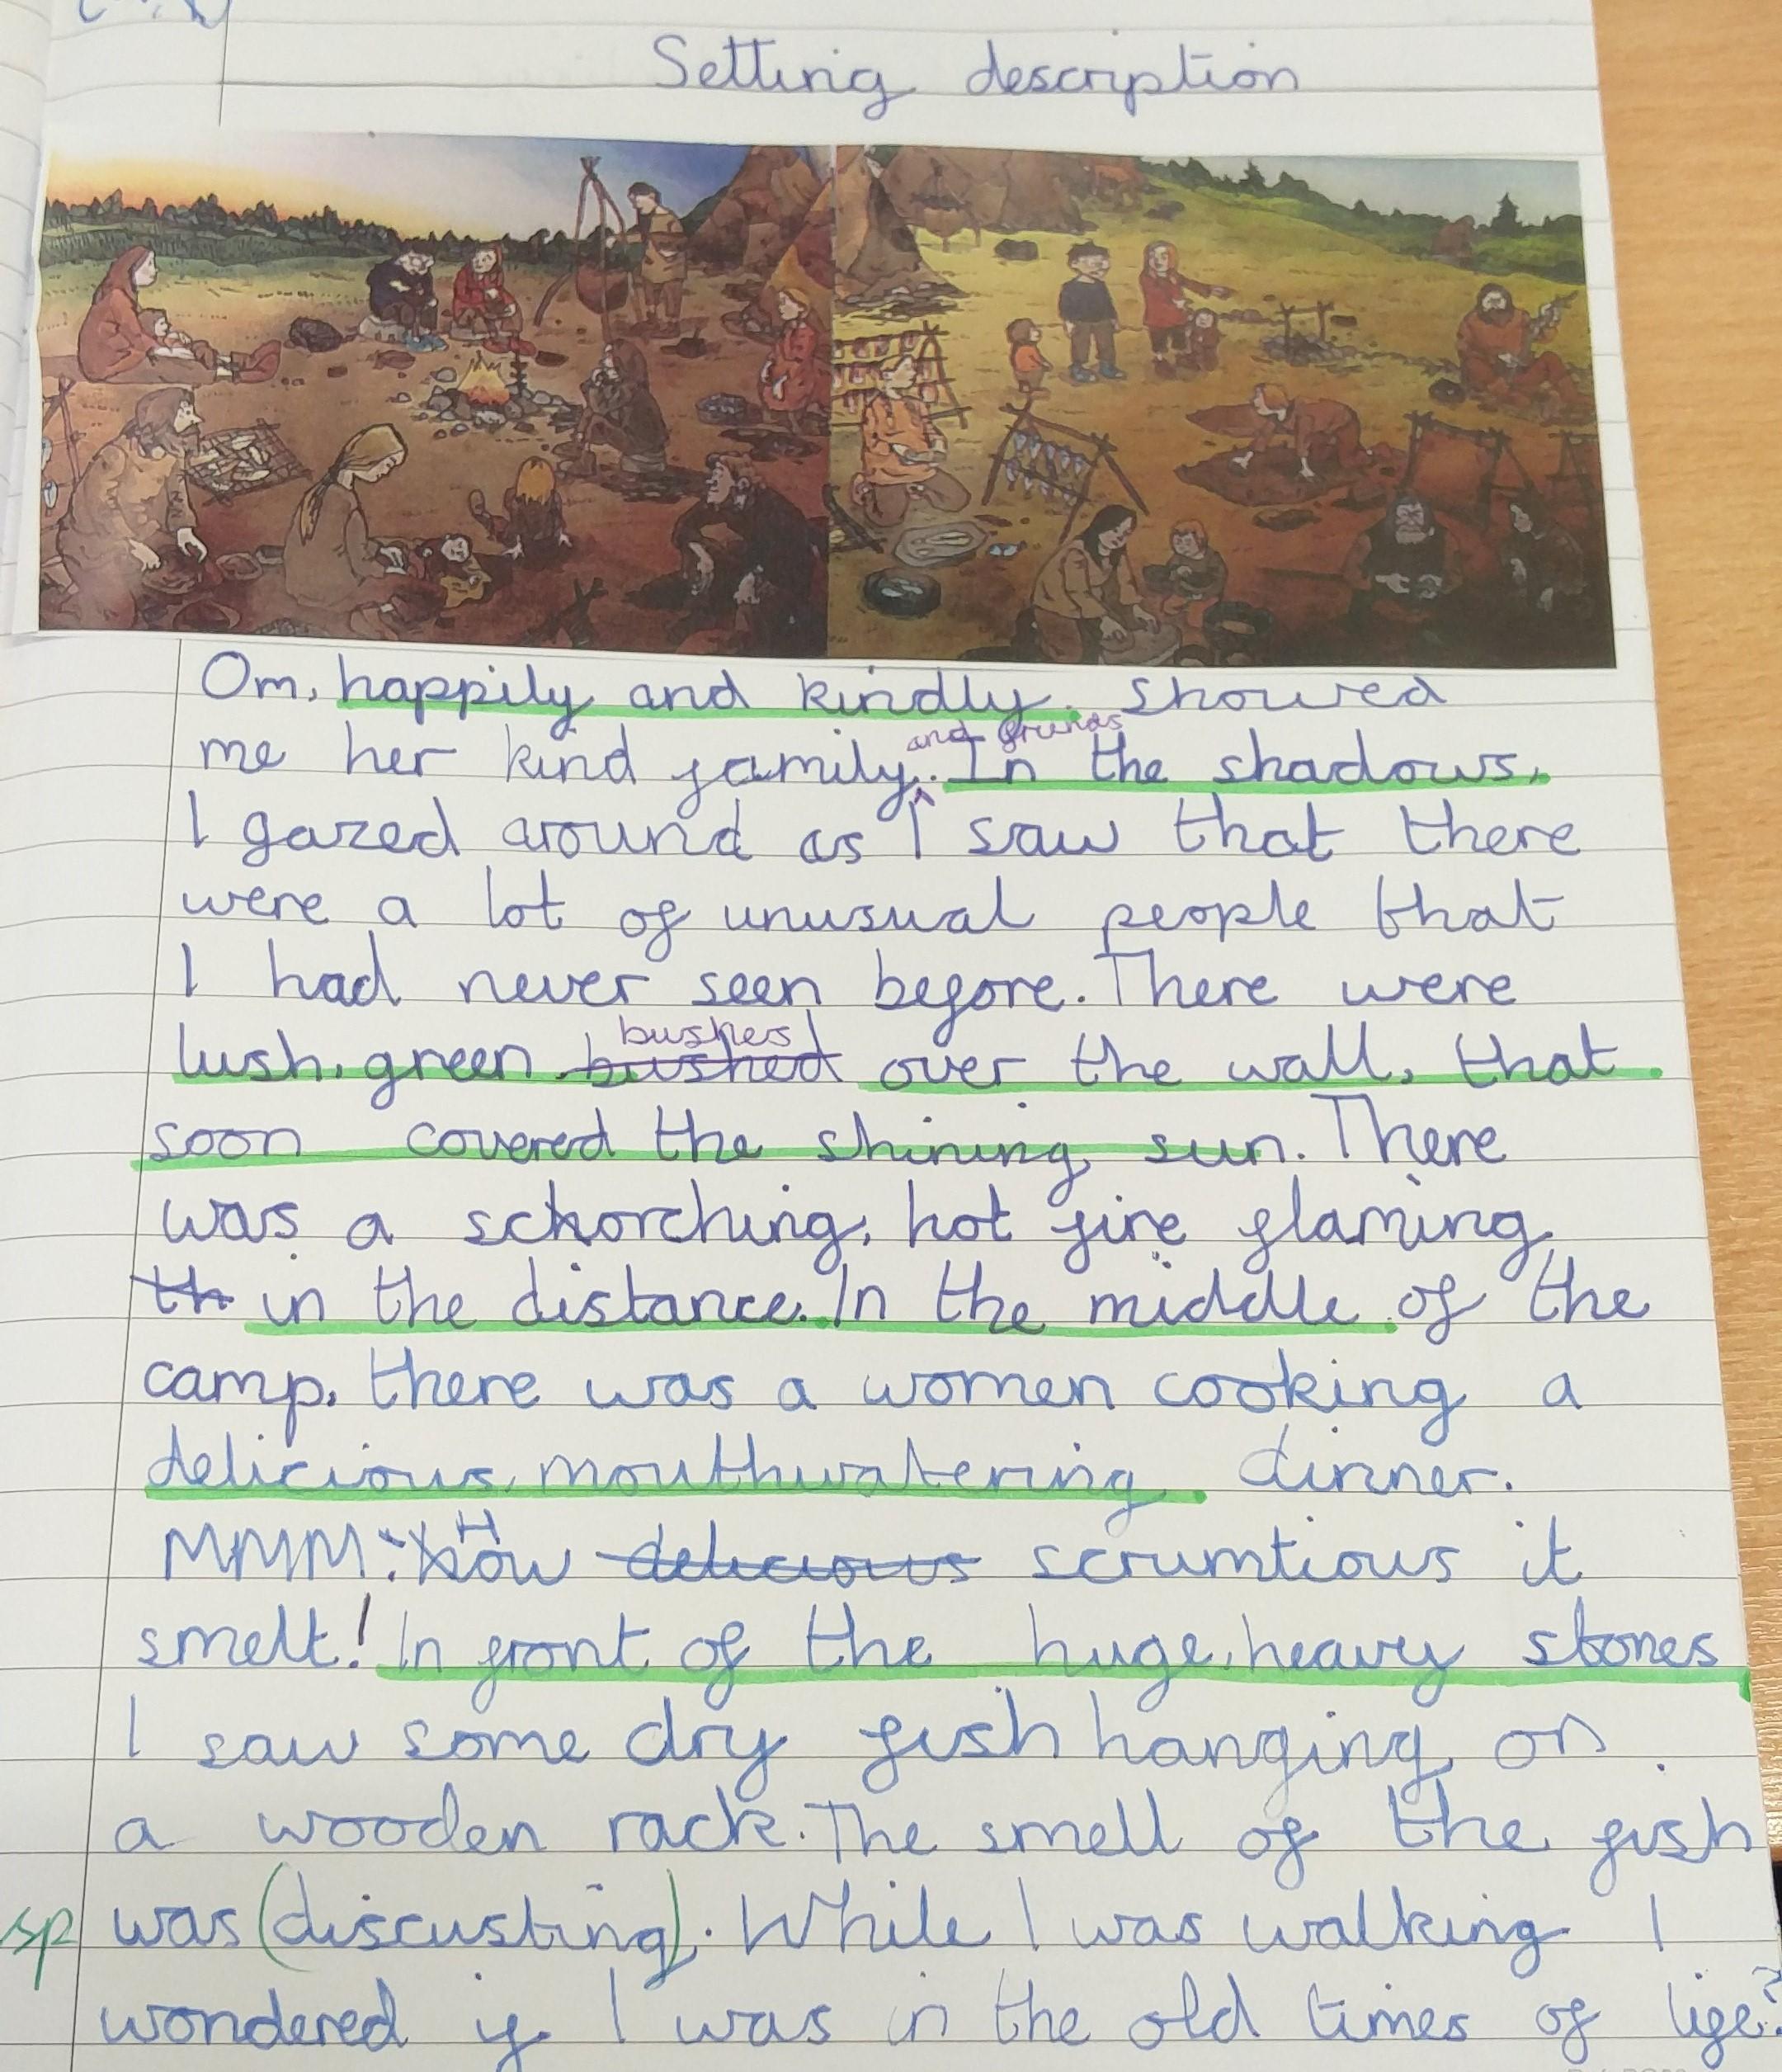 Setting description
Om, happily and kindly, showed
and friends
me her kind family. In the shadows,
I gazed around as I saw that there
were a lot of unusual people that
I had never seen before. There were
bushes
lush, green bushed over the wall, that
soon covered the shining sun. There
was a schorching, hot fire flaming
th in the distance. In the middle of the
camp, there was a women cooking a
delicious, mouthwatering dinner.
MMM: How delicious scrumtious it
smelt! In front of the huge, heavy stones
I saw some dry fish hanging on
a wooden rack. The smell of the fish
sp was (discusting). While I was walking I
wondered if I was in the old times of life?